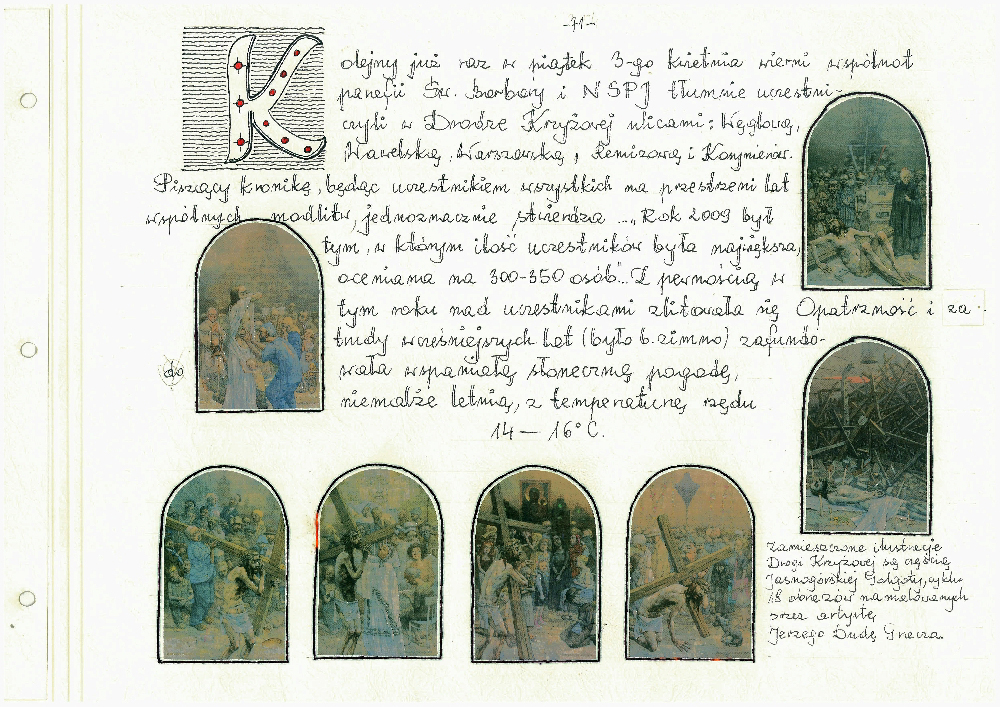 -71-
Kolejny już raz w piątek 3-go kwietnia wierni wspólnot
parafii Św. Barbary i NSPJ tłumnie uczestni-
czyli w Drodze Krzyżowej ulicami: Węglową,
Wawelską, Warszawską, Remizową i Kosynierów.
Piszący kronikę, będąc uczestnikiem wszystkich na przestrzeni lat
wspólnych modlitw, jednoznacznie stwierdza ... „Rok 2009 był
tym, w którym ilość uczestników była największa,
oceniana na 300-350 osób"... Z pewnością w
tym roku nad uczestnikami zlitowała się Opatrzność i za
trudy wcześniejszych lat (było b. zimno) zafundo-
wała wspaniałą słoneczną pogodę,
niemalże letnią, z temperaturą rzędu
14 — 16°C.
Zamieszczone ilustracje
Drogi Krzyżowej są częścią
Jasnogórskiej Golgoty, cyklu
18 obrazów namalowanych
przez artystę
Jerzego Dudę Gracza.